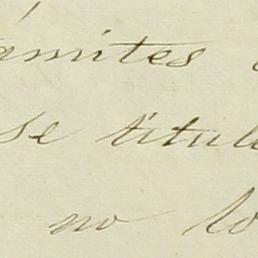 ámites
se titul
no lo